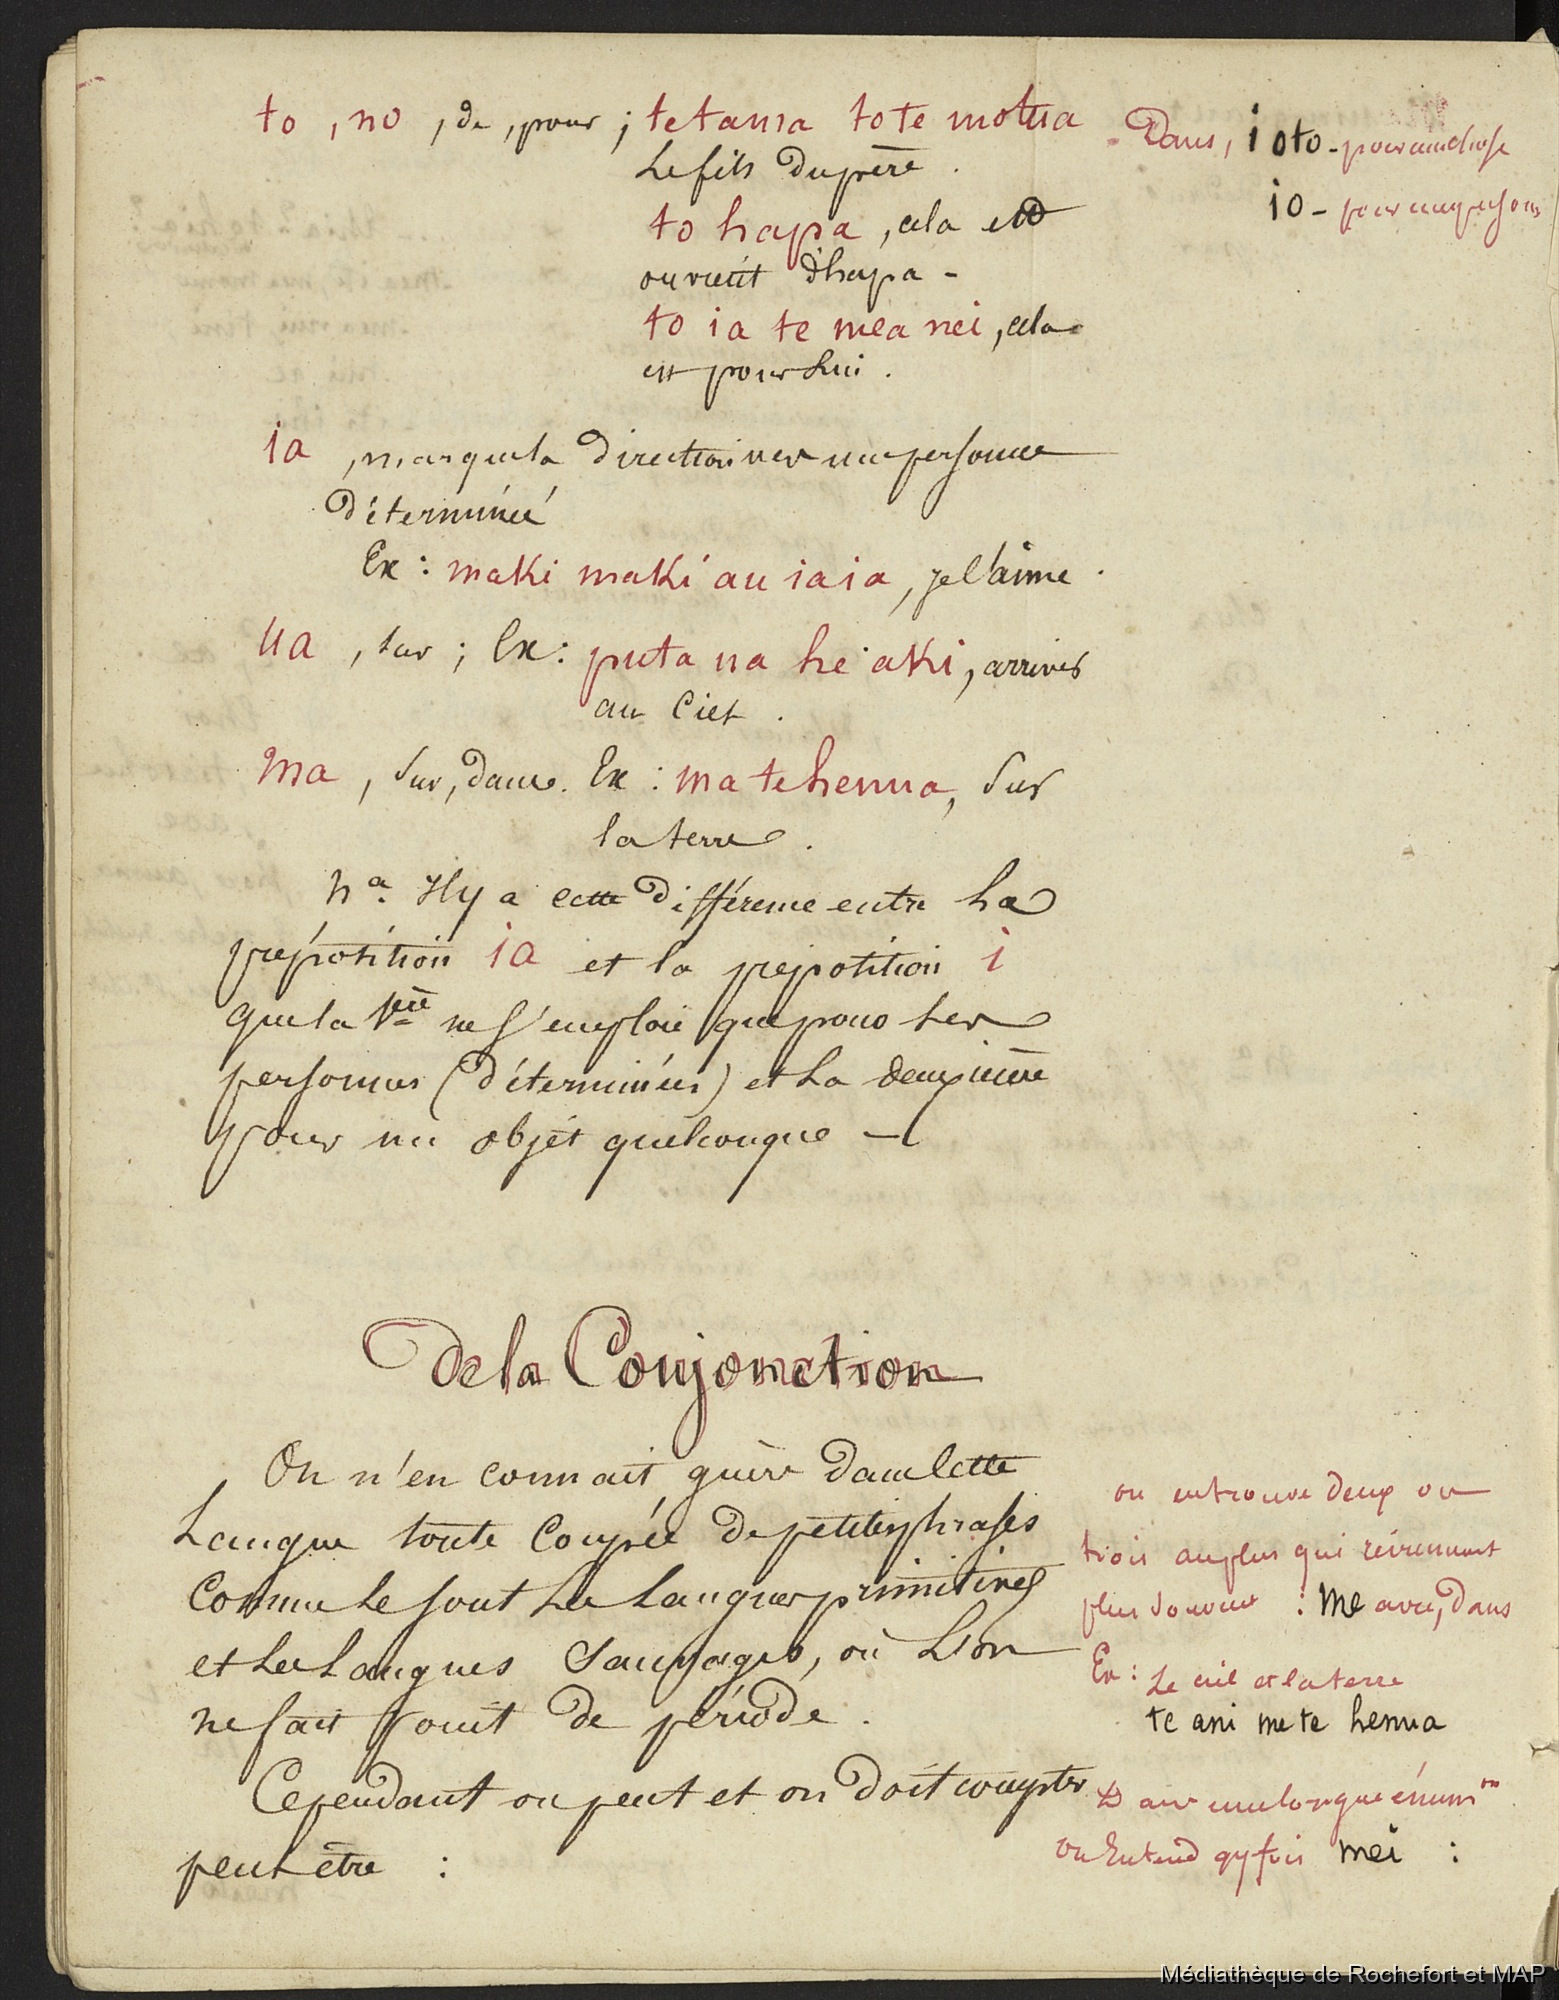 to, no, de, pour; te tama to te motua
Le fils du père.
to hapa, cela est
ou vient d'hapa -
to ia te mea nei, cela
est pour lui.
ia, marque la direction vers une personne
déterminée
Ex: maki maki au ia ia, je l'aime.
ua, sur; Ex: puta ua he aki, arriver
au Ciel.
ma, sur, dans. Ex: ma te henua, sur
la terre.
na. Il y a cette différence entre la
préposition ia et la préposition i
que la 1ère ne s'emploie que pour les
personnes (déterminées) et la deuxième
pour un objet quelconque -
Dans, i oto - pour une chose
io - pour une personne
De la Conjonction
On n'en connait guère dans cette
Langue toute Coupée de petites phrases
Comme le sont les Langues primitives
et les Langues Sauvages, où L'on
ne fait point de période.
Cependant on peut et on doit compter
peut être :
on en trouve deux ou
trois au plus qui reviennent
plus souvent : me avec, dans
Ex: Le ciel et la terre
te ani me te henua
Dans une longue énumon
on Entend qqfois mei :
Médiathèque de Rochefort et MAP